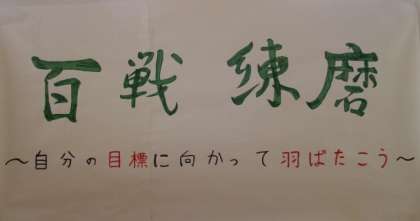 百戦練磨
～自分の目標に向かって羽ばたこう～